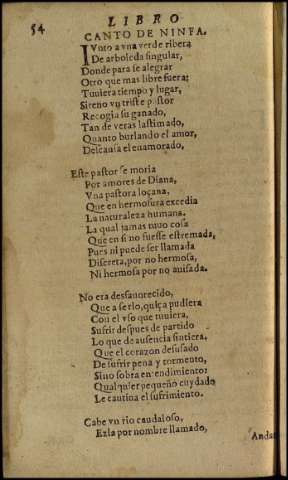 54
LIBRO
CANTO DE NINFA.
IVnto a vna verde ribera
De arboleda singular,
Donde para se alegrar
Otro que mas libre fuera:
Tuuiera tiempo y lugar,
Sireno vn triste pastor
Recogia su ganado,
Tan de veras lastimado,
Quanto burlando el amor,
Descansa el enamorado,
Este pastor se moria
Por amores de Diana,
Vna pastora loçana,
Que en hermosura excedia
La naturaleza humana.
La qual jamas tuuo cosa
Que en si no fuesse estremada,
Pues ni puede ser llamada
Discreta, por no hermosa,
Ni hermosa por no auisada.
No era desfauorecido,
Que a serlo, quiça pudiera
Con el vso que tuuiera,
Sufrir despues de partido
Lo que de ausencia sintiera,
Que el corazon desusado
De sufrir pena y tormento,
Sino sobra entendimiento:
Qualquier pequeño cuydado
Le catiua el sufrimiento.
Cabe vn rio caudaloso,
Ezla por nombre llamado,
Andau